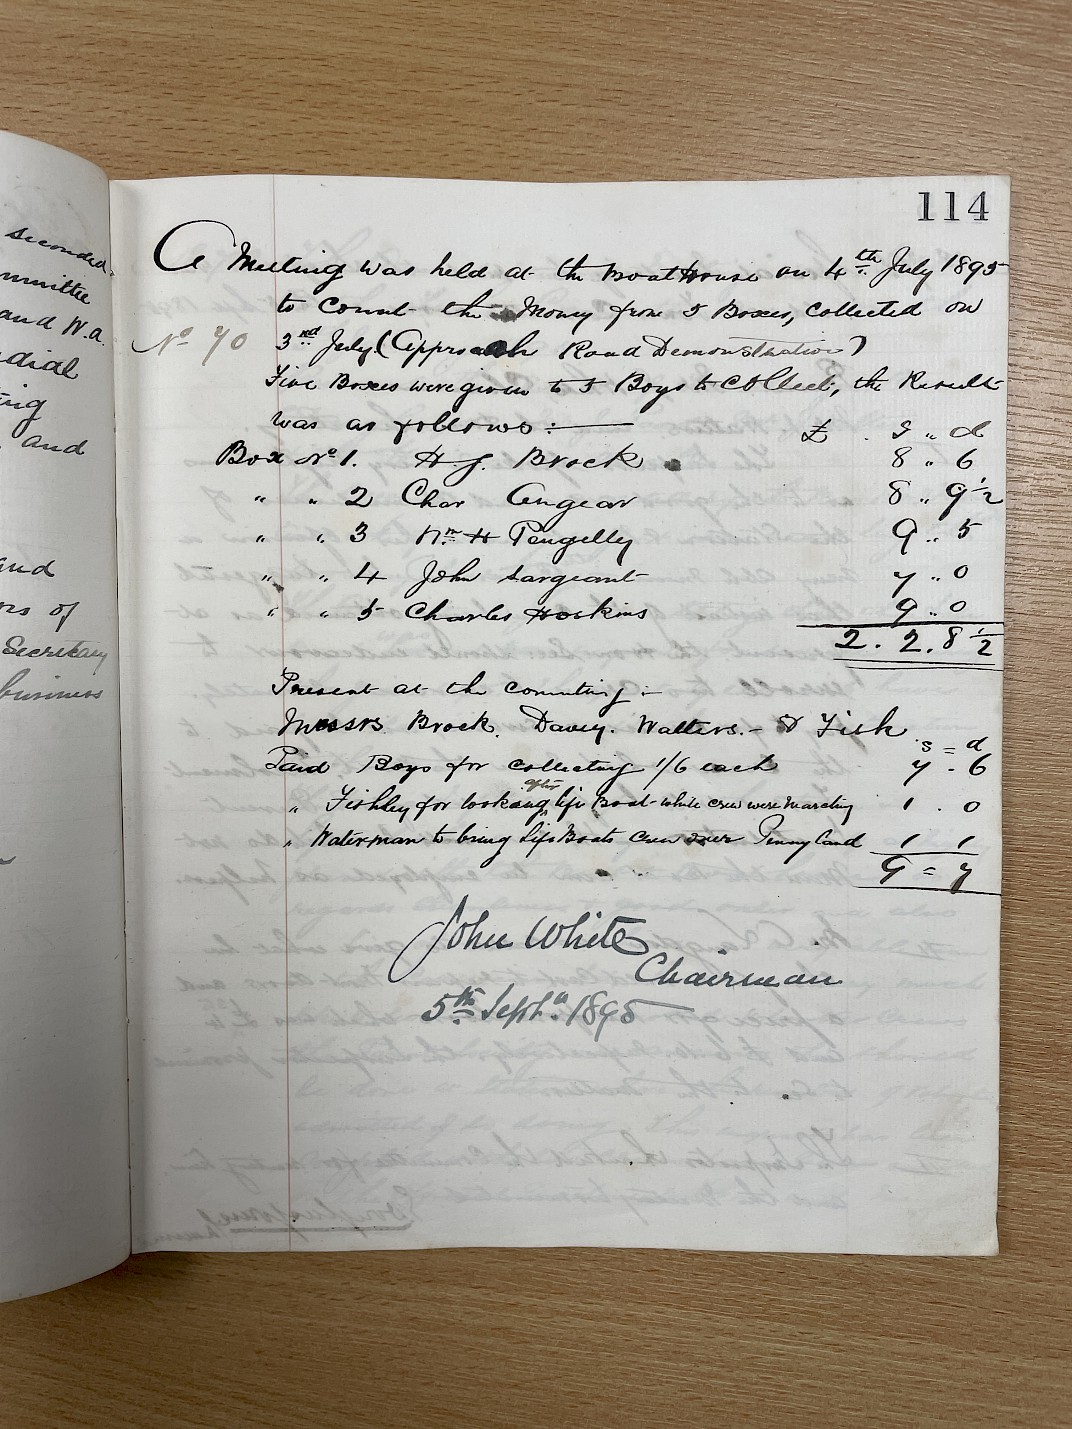 seconded
mmittee
and W.a.
dial
ing
and
and
ors of
Secretary
business
114
A Meeting was held at the Boat House on 4th July 1895
to Count the Money from 5 Boxes, collected on
No 70
3rd July (Approach Road Demonstration)
Five Boxes were given to 5 Boys to collect, the Result
was as follows :—
£ . S " d
Box No 1. H. J. Brock 8 " 6
" " 2 Char Angear 8 " 9 1/2
" " 3 Wm H Pengelly 9 " 5
" " 4 John Sargeant 7 " 0
" " 5 Charles Hoskins 9 " 0
2 . 2 . 8 1/2
Present at the counting :-
Messrs Brock. Davey. Walters. - & Fisk
s = d
Paid Boys for collecting 1/6 each 7 - 6
" Fishley for looking after life Boat while crew were Marching 1 . 0
" Waterman to bring Life Boats Crew over Pennyland 1 1
9 = 7
John White
Chairman
5th Septr. 1895